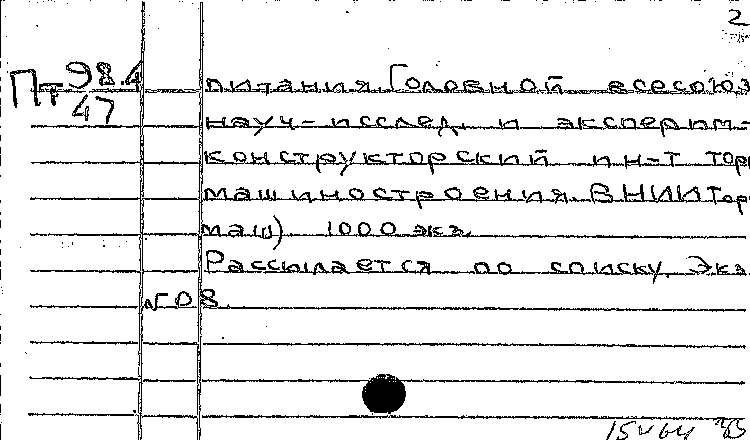 2
Пт 98.4
47
питания. Головной всесоюз
науч-исслед. и эксперим-
конструкторский ин-т торг
машиностроения. ВНИИТорг
маш) 1000 экз.
Рассылается по списку. Экз
№ 08.
15 V 64